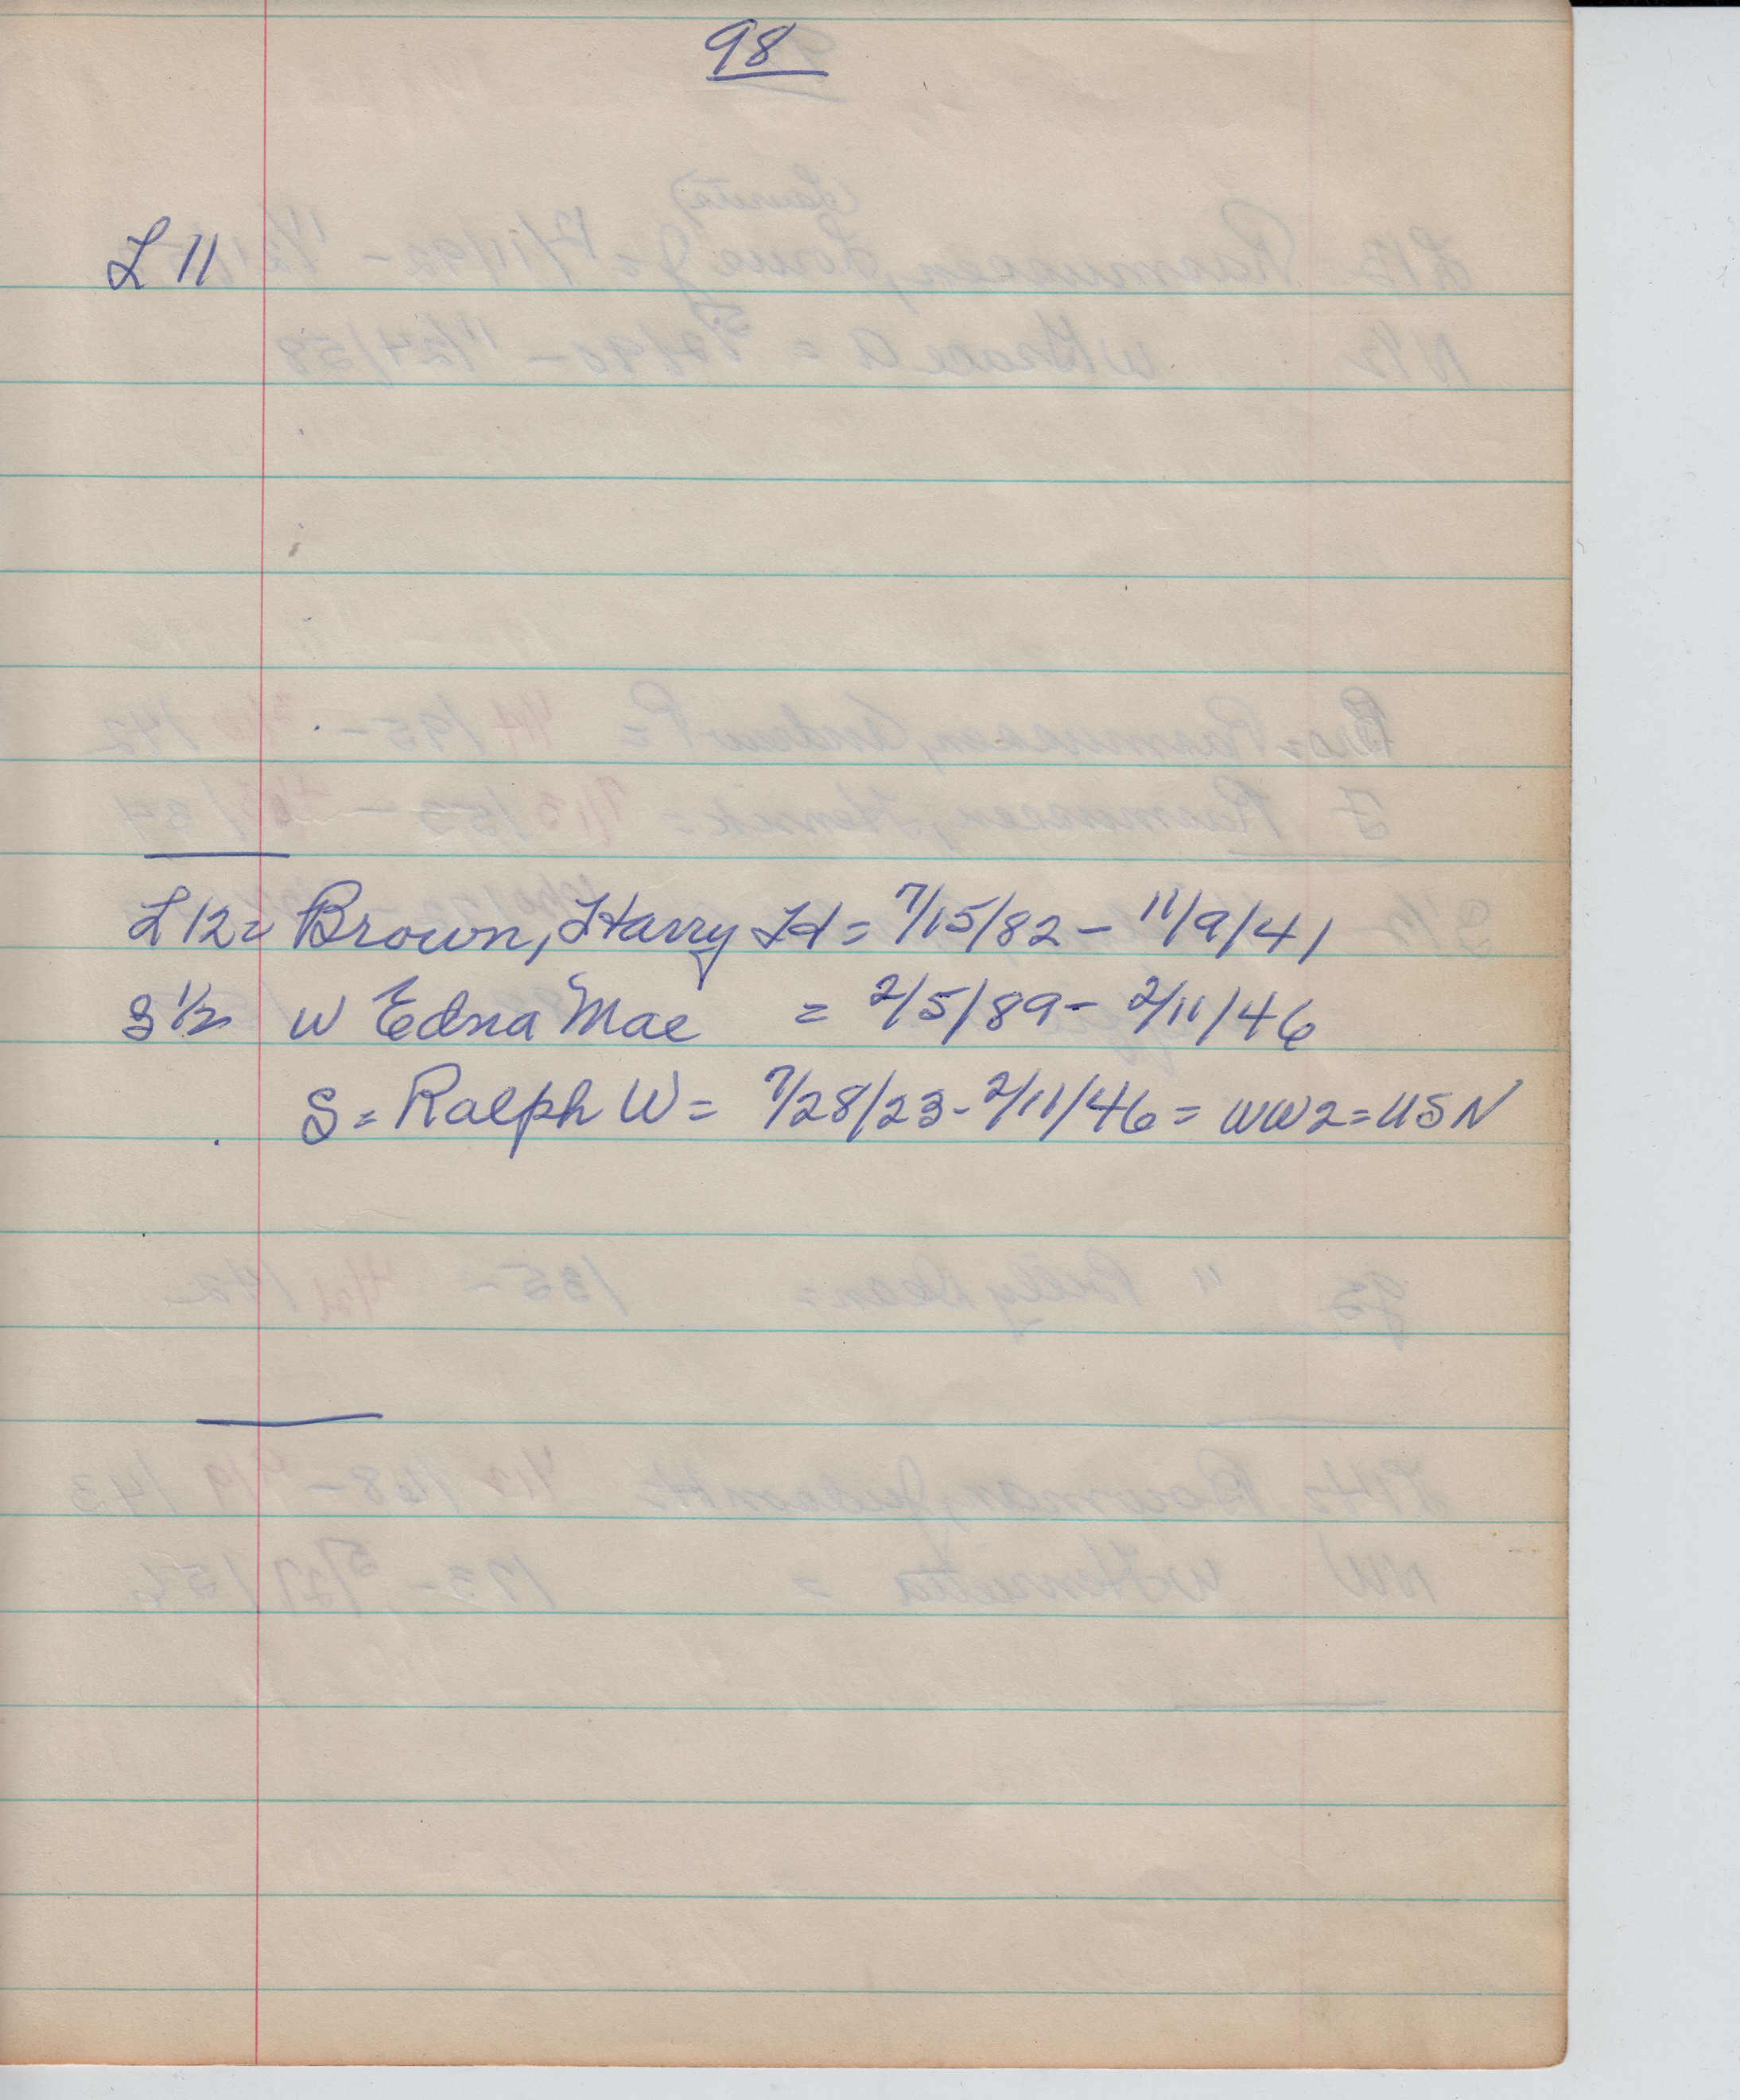 98
L 11
L 12 = Brown, Harry H = 7/15/82 - 11/9/41
S 1/2 w Edna Mae = 2/5/89 - 2/11/46
S = Ralph W = 7/28/23 - 2/11/46 = WW2 = USN